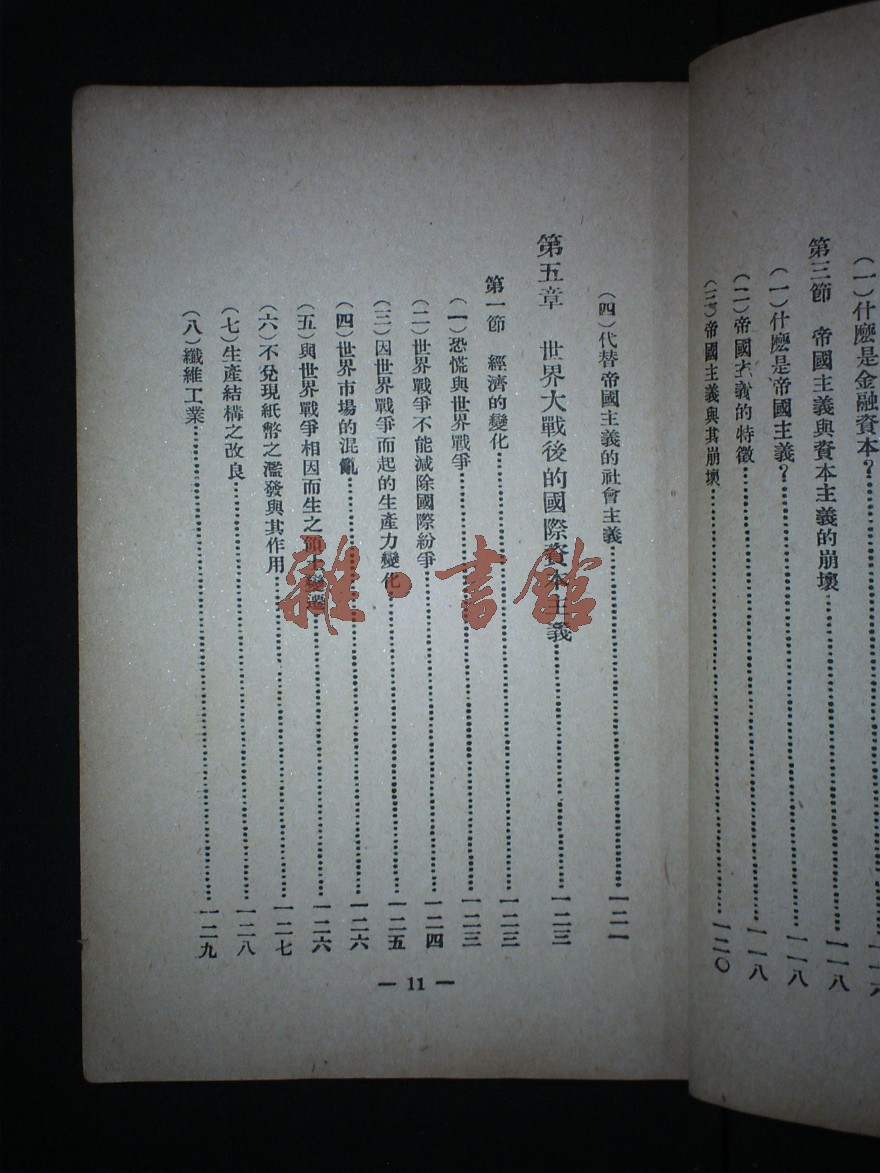 (一)什麽是金融資本?……一一六
第三節 帝國主義與資本主義的崩壞……一一八
(一)什麽是帝國主義?……一一八
(二)帝國主義的特徵……一一八
(三)帝國主義與其崩壞……一二〇
(四)代替帝國主義的社會主義……一二一
第五章 世界大戰後的國際資本主義……一二三
第一節 經濟的變化……一二三
(一)恐慌與世界戰爭……一二三
(二)世界戰爭不能減除國際紛爭……一二四
(三)因世界戰爭而起的生產力變化……一二五
(四)世界市場的混亂……一二六
(五)與世界戰爭相因而生之領土變遷……一二六
(六)不兌現紙幣之濫發與其作用……一二七
(七)生產結構之改良……一二八
(八)纖維工業……一二九
— 11 —
雜·書館